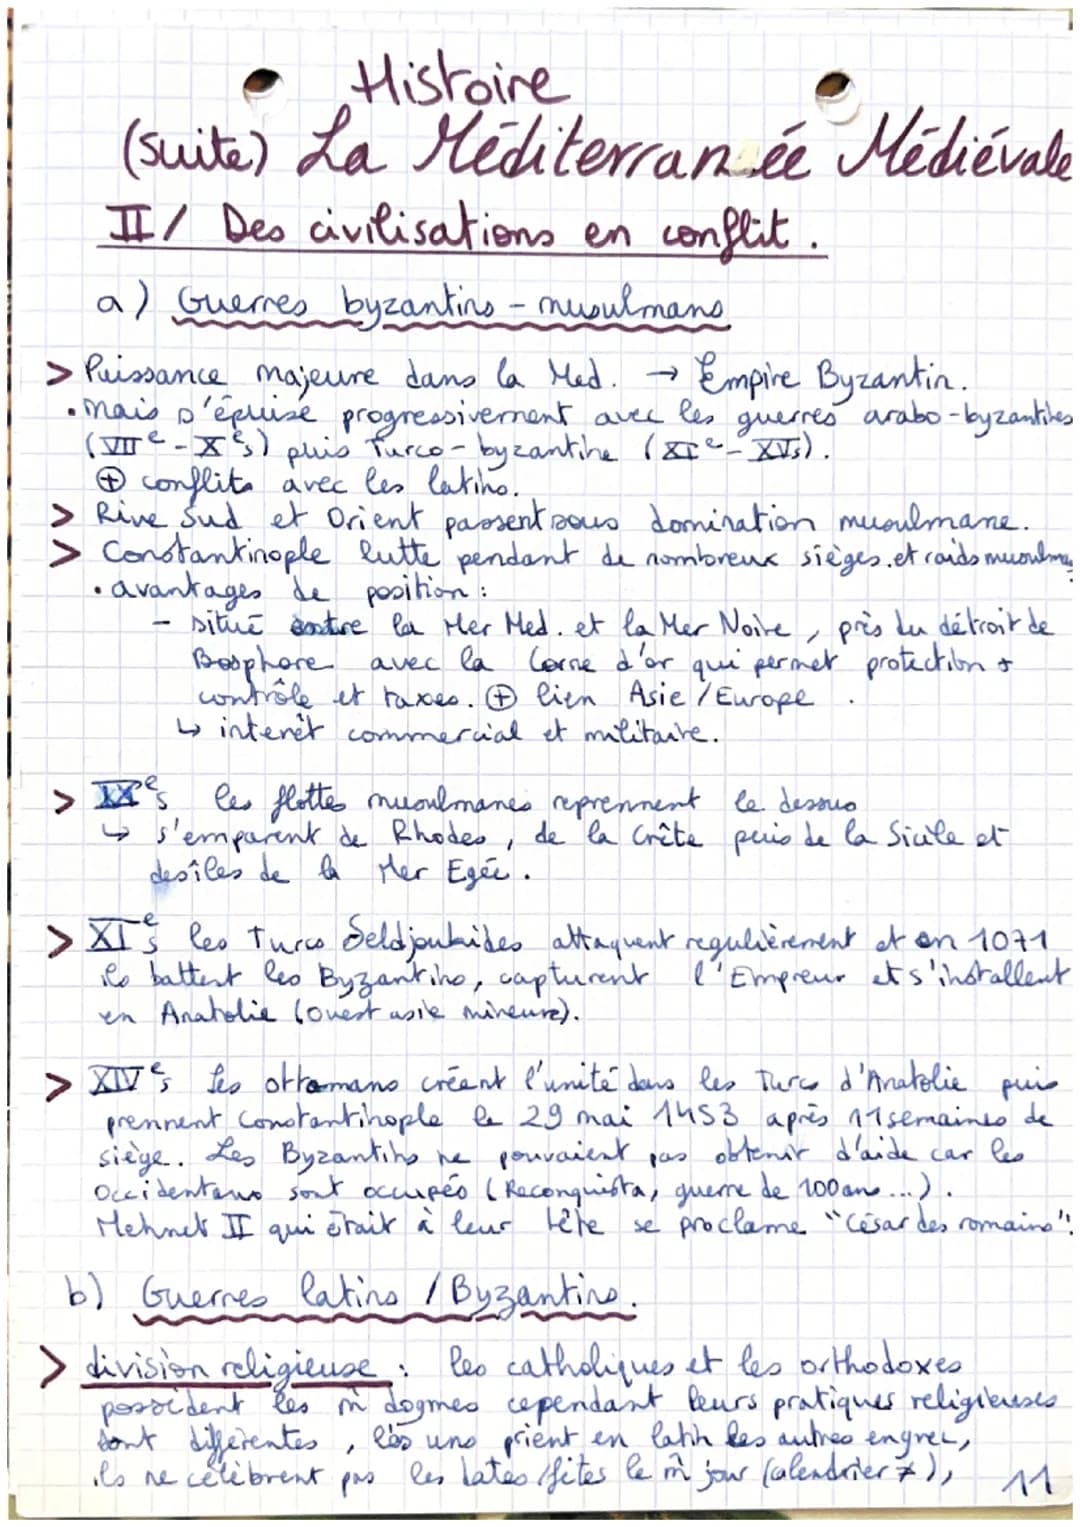 Histoire
(suite) La Méditerranée Médiévale
II/ Des civilisations en conflit.
a) Guerres byzantins - musulmans
> Puissance majeure dans la Med. → Empire Byzantin.
. mais s'épuise progressivement avec les guerres arabo-byzantines
(VIIe - Xes) puis Turco-byzantine (XIe - XVs).
⊕ conflits avec les latins.
> Rive Sud et Orient passent sous domination musulmane.
> Constantinople lutte pendant de nombreux sièges et raids musulma
. avantages de position :
- situé entre la Mer Med. et la Mer Noire, près du détroit de
Bosphore avec la Corne d'or qui permet protection +
contrôle et taxes. ⊕ lien Asie / Europe .
↳ interêt commercial et militaire.
> IXes les flottes musulmanes reprennent le dessus
↳ s'emparent de Rhodes, de la Crête puis de la Sicile et
des îles de la Mer Egée.
> XIes les Turco Seldjoukides attaquent regulièrement et en 1071
ils battent les Byzantins, capturent l'Empreur et s'installent
en Anatolie (Ouest asie mineure).
> XIVes Les ottomans créent l'unité dans les Turcs d'Anatolie puis
prennent Constantinople le 29 mai 1453 après 11 semaines de
siège. Les Byzantins ne pouvaient pas obtenir d'aide car les
Occidentaux sont occupés (Reconquista, guerre de 100 ans ...).
Mehmet II qui était à leur tête se proclame "César des romains".
b) Guerres latins / Byzantins.
> division religieuse : les catholiques et les orthodoxes
possèdent les m̂ dogmes cependant leurs pratiques religieuses
sont différentes, les uns prient en latin les autres en grec,
ils ne célèbrent pas les dates/fêtes le m̂ jour (calendrier ≠),
11